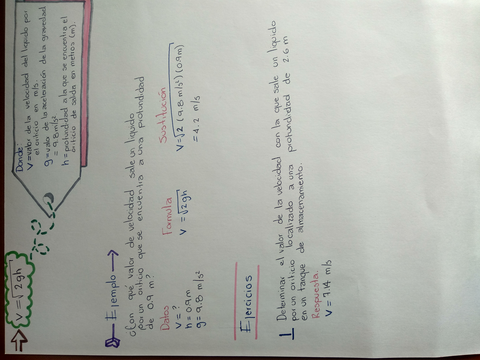 V = √2gh
Donde:
V= valor de la velocidad del líquido por
el orificio en m/s.
g= valor de la aceleración de la gravedad
= 9.8 m/s²
h= profundidad a la que se encuentra el
orificio de salida en metros (m).
Ejemplo
¿Con que valor de velocidad sale un líquido
por un orificio que se encuentra a una profundidad
de 0.9 m?
Datos
V= ?
h= 0.9m
g= 9.8 m/s²
Formula
V = √2gh
Sustitución
V= √2 (9.8 m/s²) (0.9m)
= 4.2 m/s
Ejercicios
1 Determinar el valor de la velocidad con la que sale un líquido
por un orificio localizado a una profundidad de 2.6 m
en un tanque de almacenamiento.
Respuesta.
V = 7.14 m/s